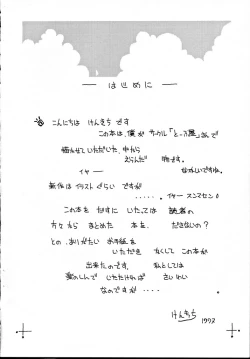 ── はじめに ──
こんにちは けんきち です
この本は、僕が サークル「とっ 屋」さんで
描かせて いただいた、中から
えらんだ 物です。
イヤー なつかしいですね。
新作は イラスト ぐらい ですが
・・・・・。イヤー スンマセン!
この本を だすに いたっては 読者の
方々 から まとめた 本を、 ださないの?
との、ありがたい お手紙を
いただき なくして この本が
出来たのです。 私としては
楽しんで いただければ さいわい
なのですが ・・・・。
けんきち
1993